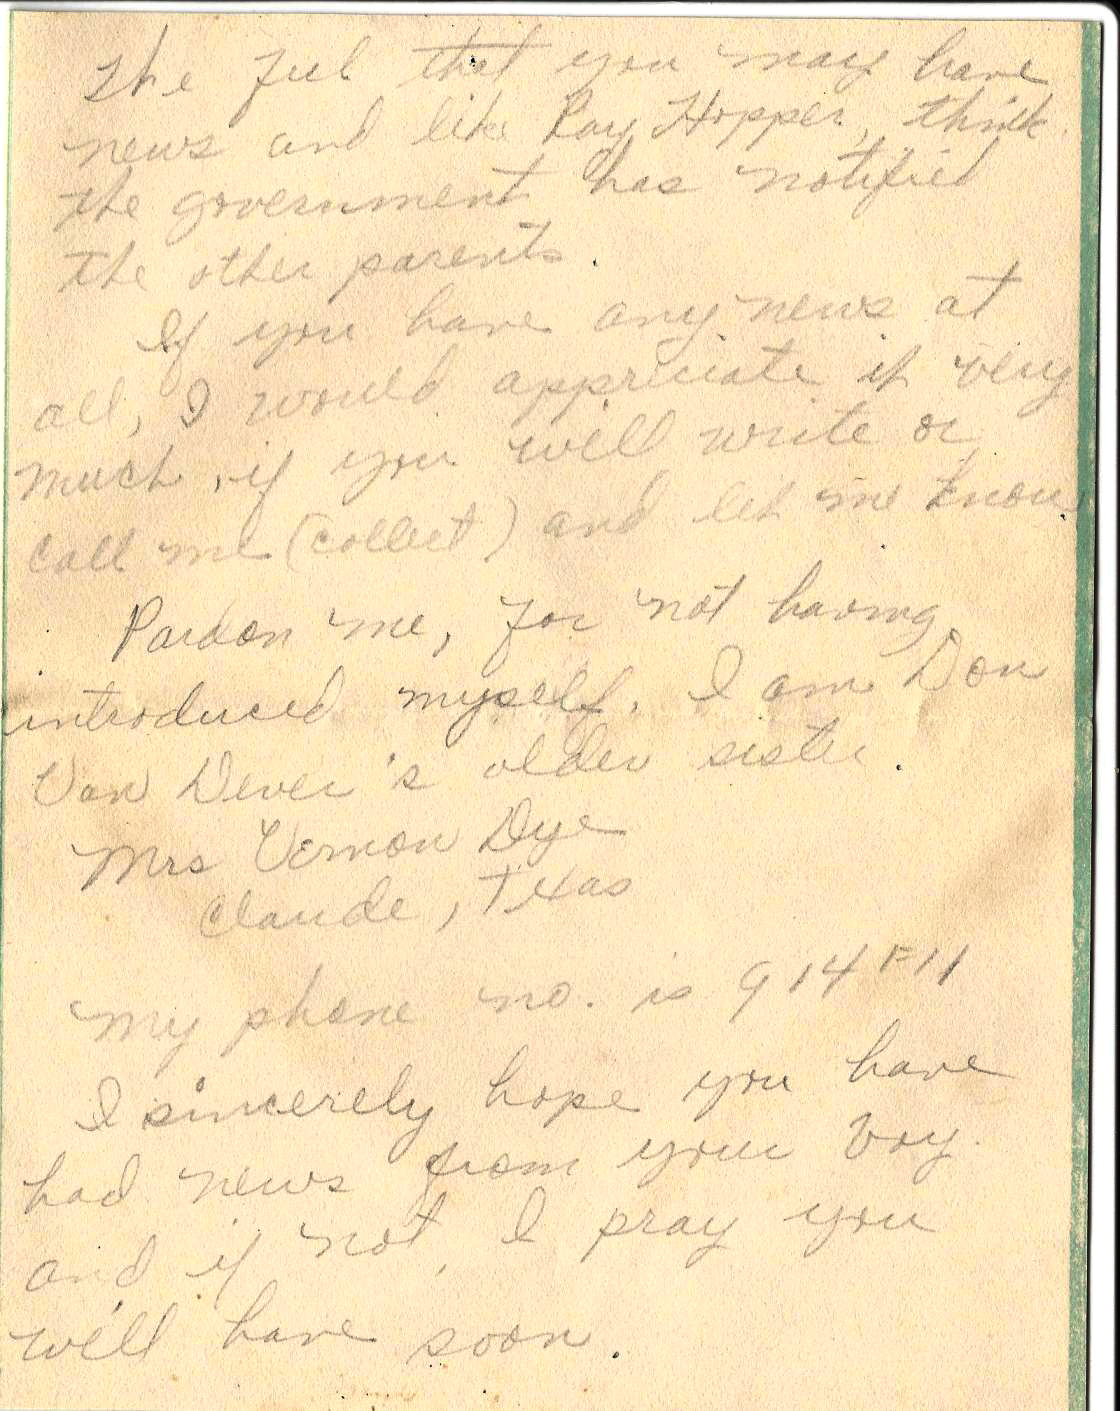 The feel that you may have
news and like Ray Hopper, think
the government has notified
the other parents.
If you have any news at
all, I would appriciate it very
much, if you will write or
call me (collect) and let me know
Pardon me, for not having
introduced myself. I am Don
Van Dever's older sister.
Mrs Vernon Dye
Claude, Texas
My phone no. is 914F11
I sincerely hope you have
had news from your boy.
and if not, I pray you
will have soon.